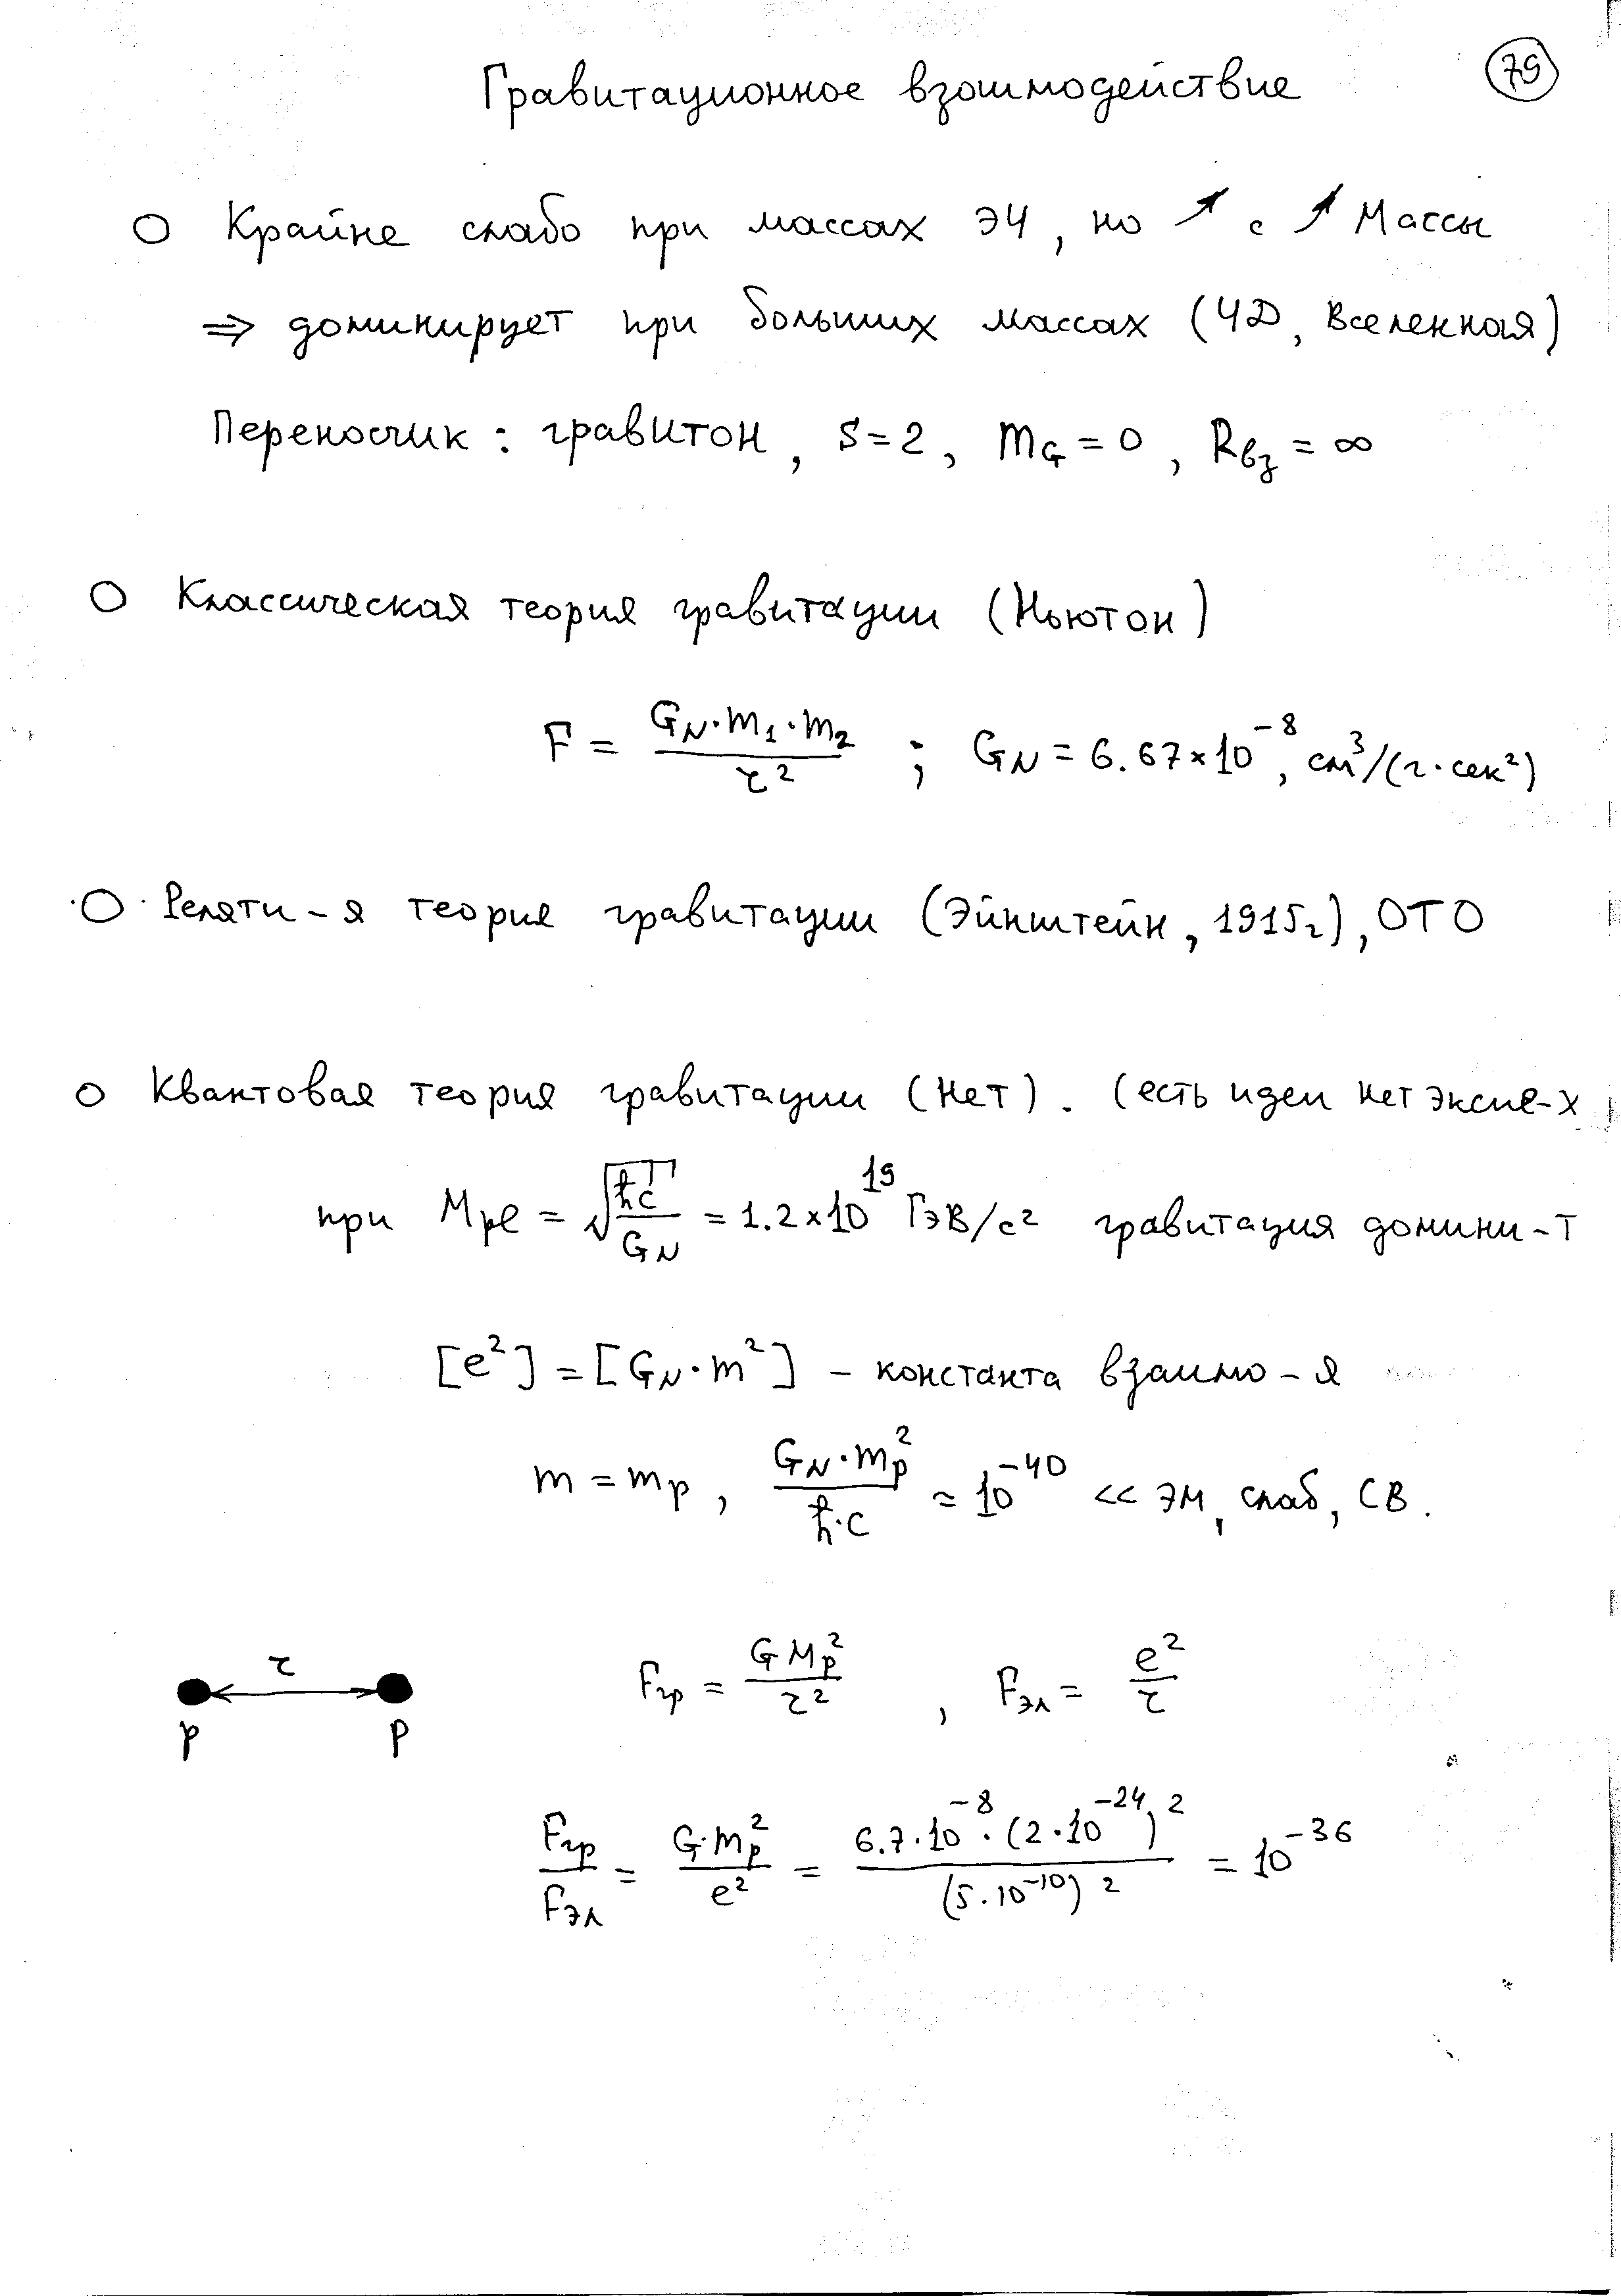 Гравитационное взаимодействие
79
○ Крайне слабо при массах ЭЧ, но ↗ с ↗ Массы
⇒ доминирует при больших массах (ЧД, Вселенная)
Переносчик: гравитон, S=2, m_G=0, R_вз=∞
○ Классическая теория гравитации (Ньютон)
F = G_N·m_1·m_2 / r^2 ; G_N = 6.67×10^-8, см^3/(г·сек^2)
○ Реляти-я теория гравитации (Эйнштейн, 1915г), ОТО
○ Квантовая теория гравитации (нет). (есть идеи нет экспе-х
при M_pl = √ħc / G_N = 1.2×10^19 ГэВ/с^2 гравитация домини-т
[e^2] = [G_N·m^2] – константа взаимо-я
m = m_p, G_N·m_p^2 / ħ·c ≈ 10^-40 << ЭМ, слаб, СВ.
r
p p
F_гр = G M_p^2 / r^2 , F_эл = e^2 / r
F_гр / F_эл = G·m_p^2 / e^2 = 6.7·10^-8·(2·10^-24)^2 / (5·10^-10)^2 = 10^-36